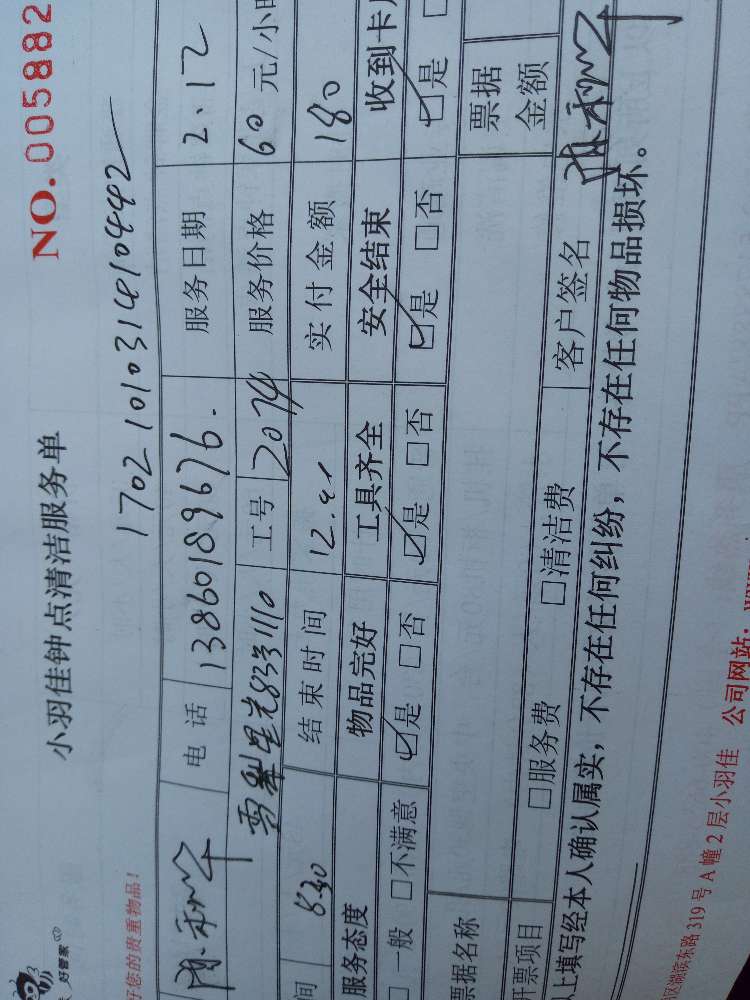 好管家
小羽佳钟点清洁服务单
NO.005882
好您的贵重物品!
17021010314810442
电 话 13860189676. 服务日期 2.12
8331110 工号 2074 服务价格 60 元/小时
间 8.30 结束时间 12. 实付金额 180
服务态度 物品完好 工具齐全 安全结束 收到卡
□一般 □不满意 ☑是 □否 ☑是 □否 ☑是 □否 ☑是 □
票据名称 票据金额
开票项目 □服务费 □清洁费 客户签名
上填写经本人确认属实,不存在任何纠纷,不存在任何物品损坏。
湖滨东路 319 号 A 幢 2 层小羽佳 公司网站: